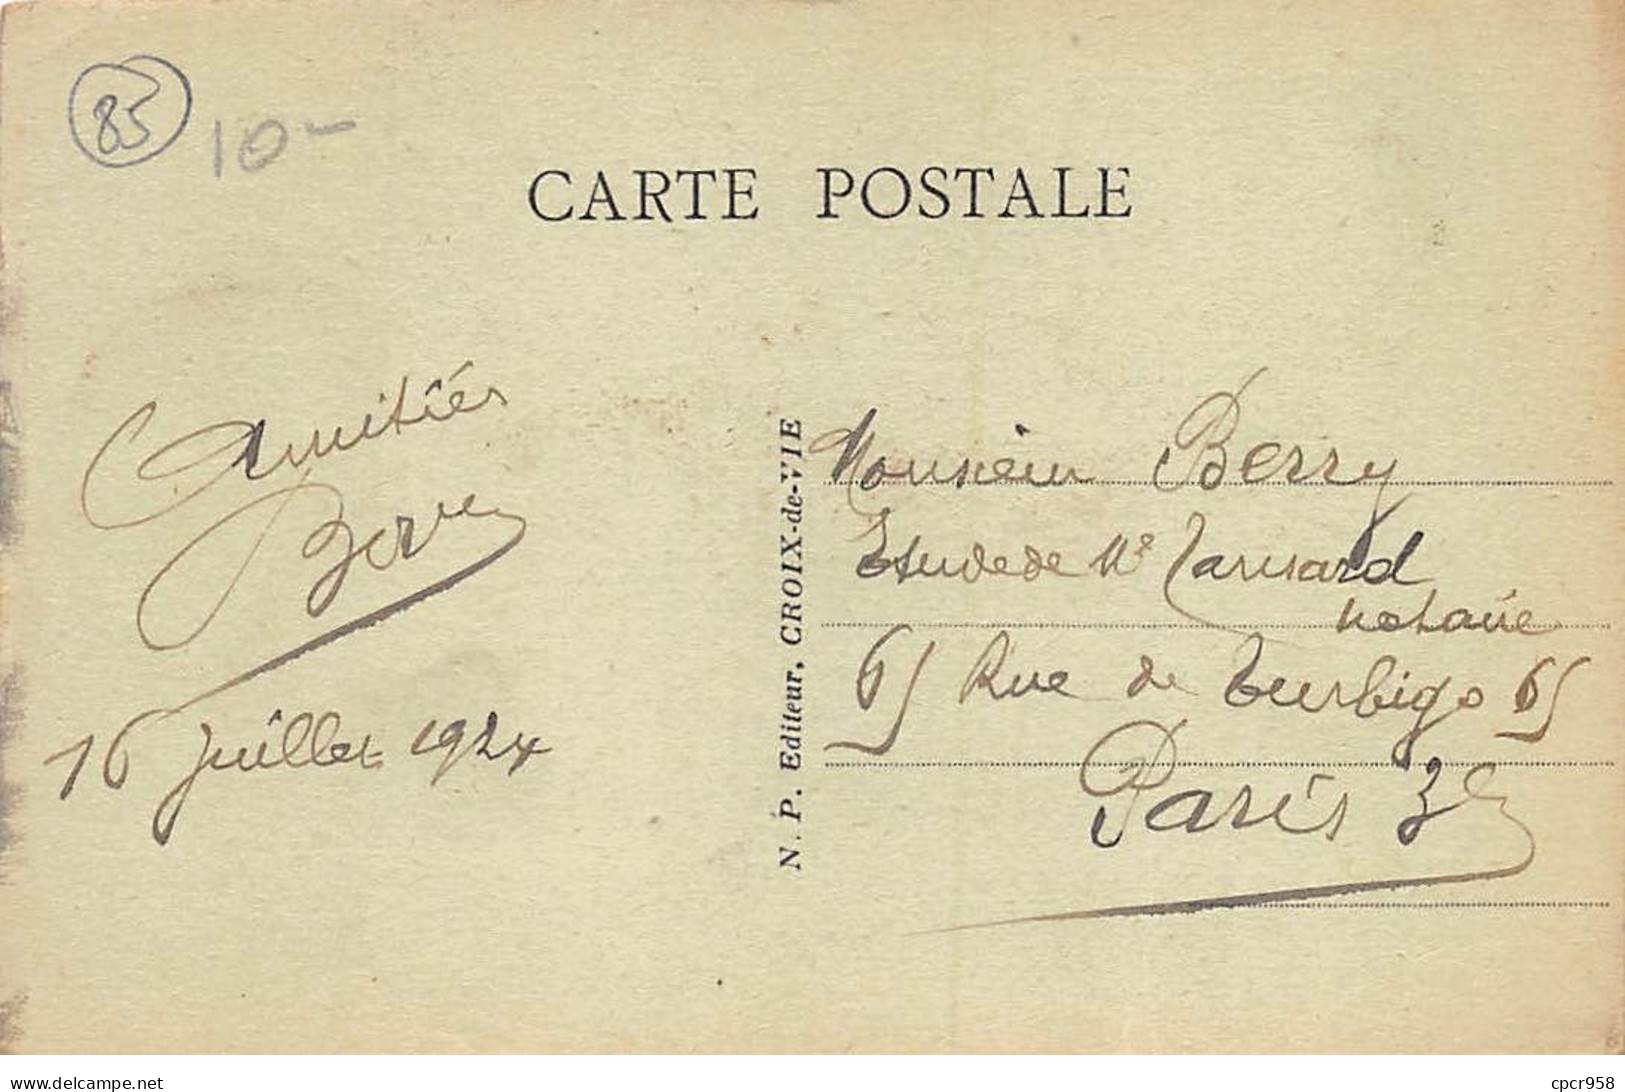 85
10-
CARTE POSTALE
Amitiés
16 Juillet 1924
N. P. Editeur, CROIX-de-VIE
Monsieur Berry
Etude de Me
notaire
65 Rue de Turbigo 65
Paris 3e
www.delcampe.net
cpcr958